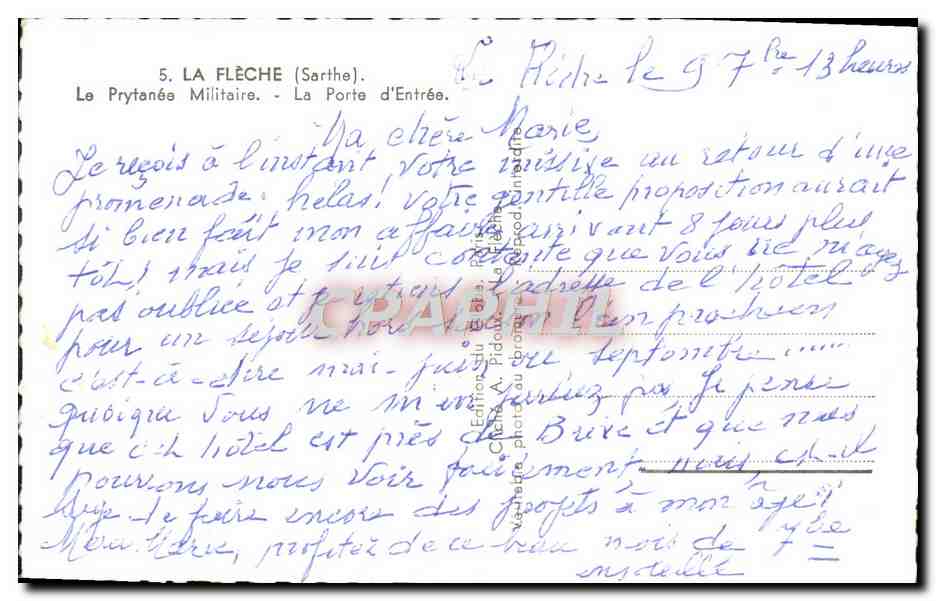 5. LA FLÈCHE (Sarthe).
Le Prytanée Militaire. - La Porte d'Entrée.
La Flèche le 9 7bre 13 heures
Ma chère Marie,
Je reçois à l'instant votre missive au retour d'une
promenade. hélas! votre gentille proposition aurait
si bien fait mon affaire arrivant 8 jours plus
tôt! mais je suis contente que vous ne m'ayez
pas oubliée et je retiens l'adresse de l'hôtel
pour un séjour hors saison l'an prochain
c'est-à-dire mai-juin ou septembre ......
quoique vous ne m'en parliez pas je pense
que cet hôtel est près de Brive et que nous
pouvons nous voir facilement, mais
faire encore des projets à mon âge!
Marie, profitez de ce beau mois de 7bre
ensoleillé
Edition du
Cliché A. Pidoux, La Flèche
Véritable photo au bromure - Reprod. interdite
CPAPHIL